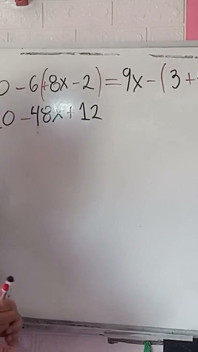 0 - 6(+8x - 2) = 9x - (3 +
0 - 48x + 12